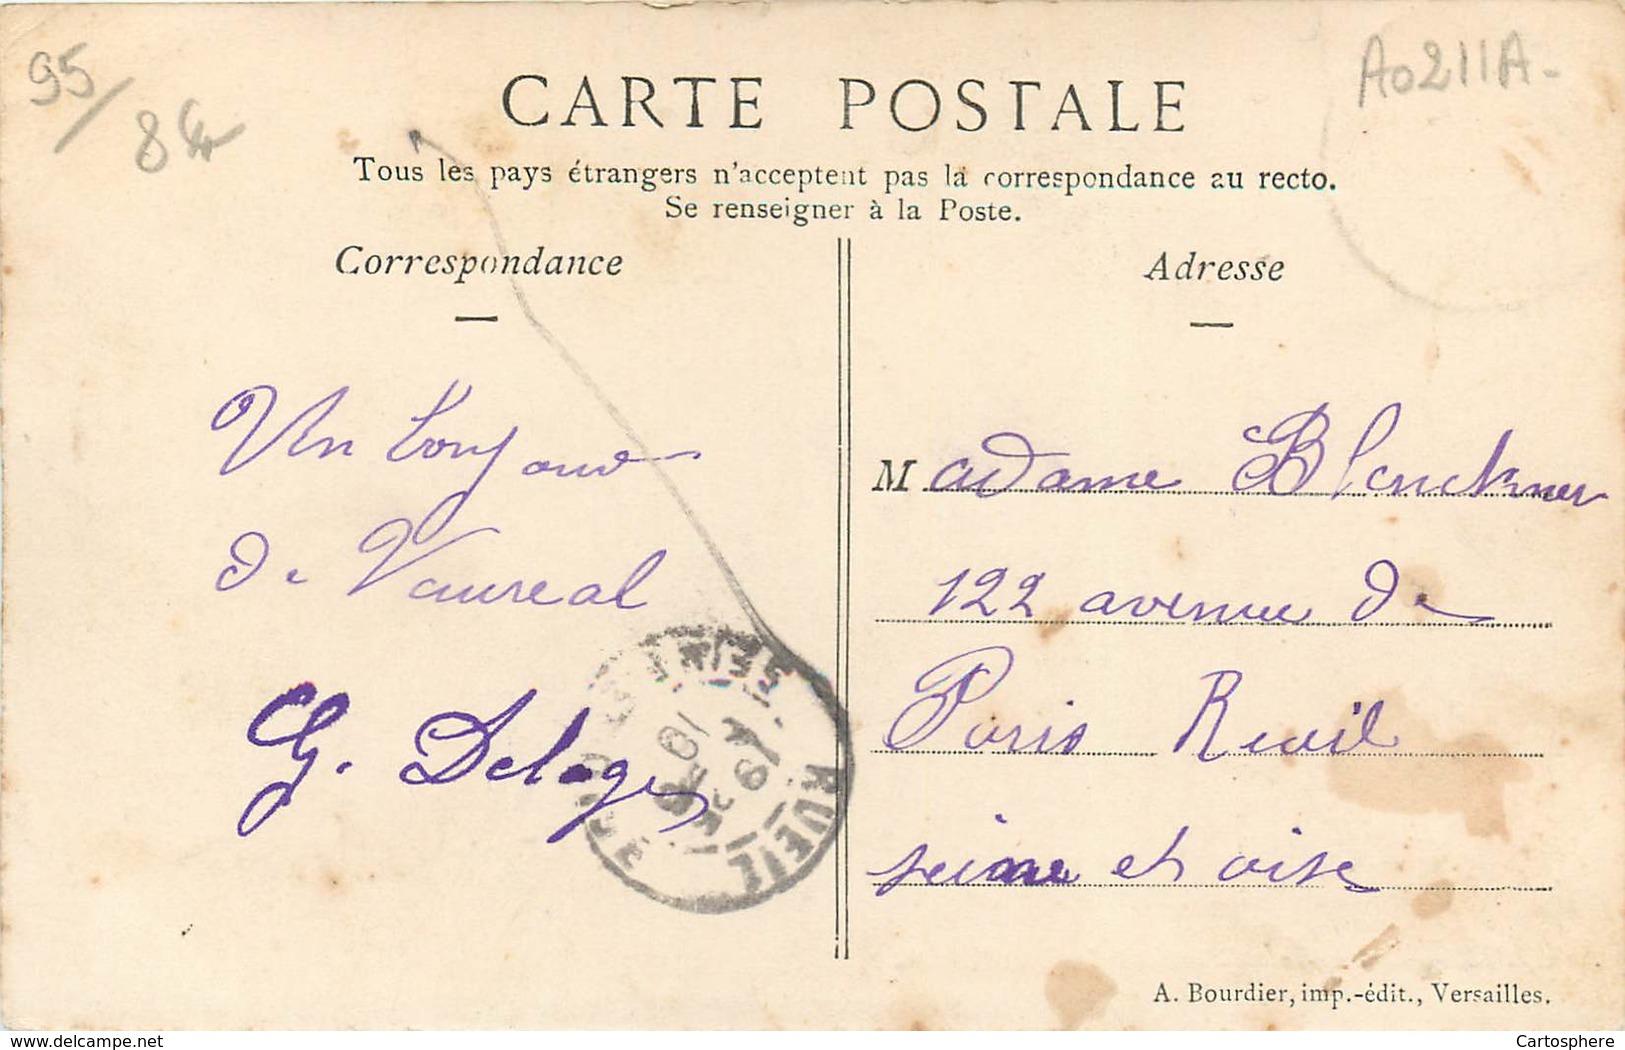 95/
8€
A0211A-
CARTE POSTALE
Tous les pays étrangers n'acceptent pas la correspondance au recto.
Se renseigner à la Poste.
Correspondance
Un bonjour
de Vaureal
G. Deloges
Adresse
Madame Blanckner
122 avenue de
Paris Rueil
seine et oise
RUEIL
SEINE ET OISE
A. Bourdier, imp.-édit., Versailles.
www.delcampe.net
Cartosphere